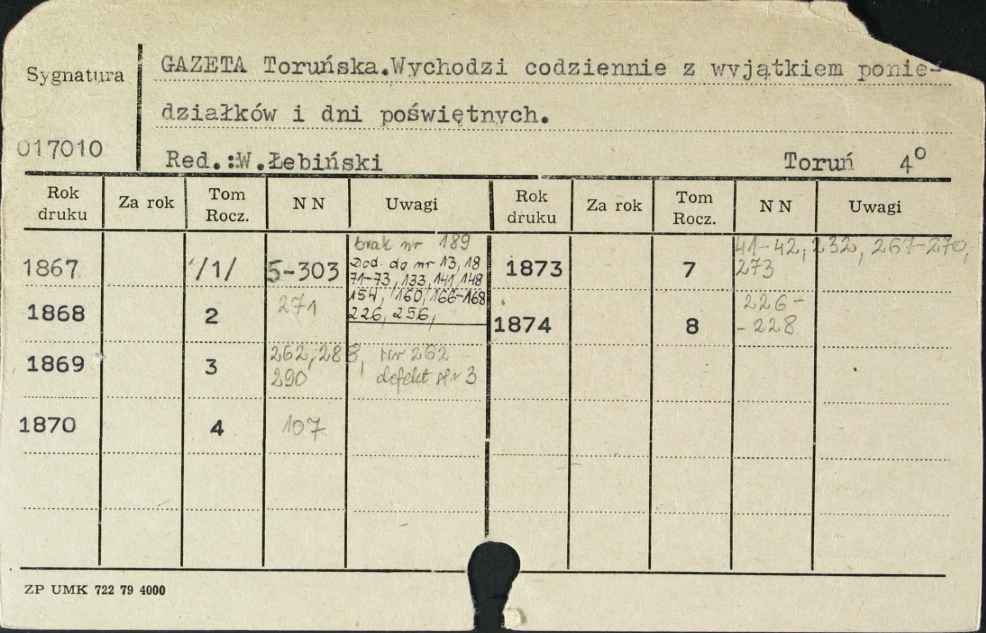 Sygnatura
GAZETA Toruńska.Wychodzi codziennie z wyjątkiem ponie-
działków i dni poświętnych.
017010
Red.:W.Łebiński Toruń 4º
Rok druku Za rok Tom Rocz. NN Uwagi Rok druku Za rok Tom Rocz. NN Uwagi
1867 /1/ 5-303 brak nr 189
Dod. do nr 13, 18
71-73, 133, 141, 148
154, 160, 166-168
226, 256,
1873 7 41-42, 232, 267-270,
273
1868 2 271
1874 8 226-
-228
1869 3 262, 288,
290
nr 262
defekt str 3
1870 4 107
ZP UMK 722 79 4000